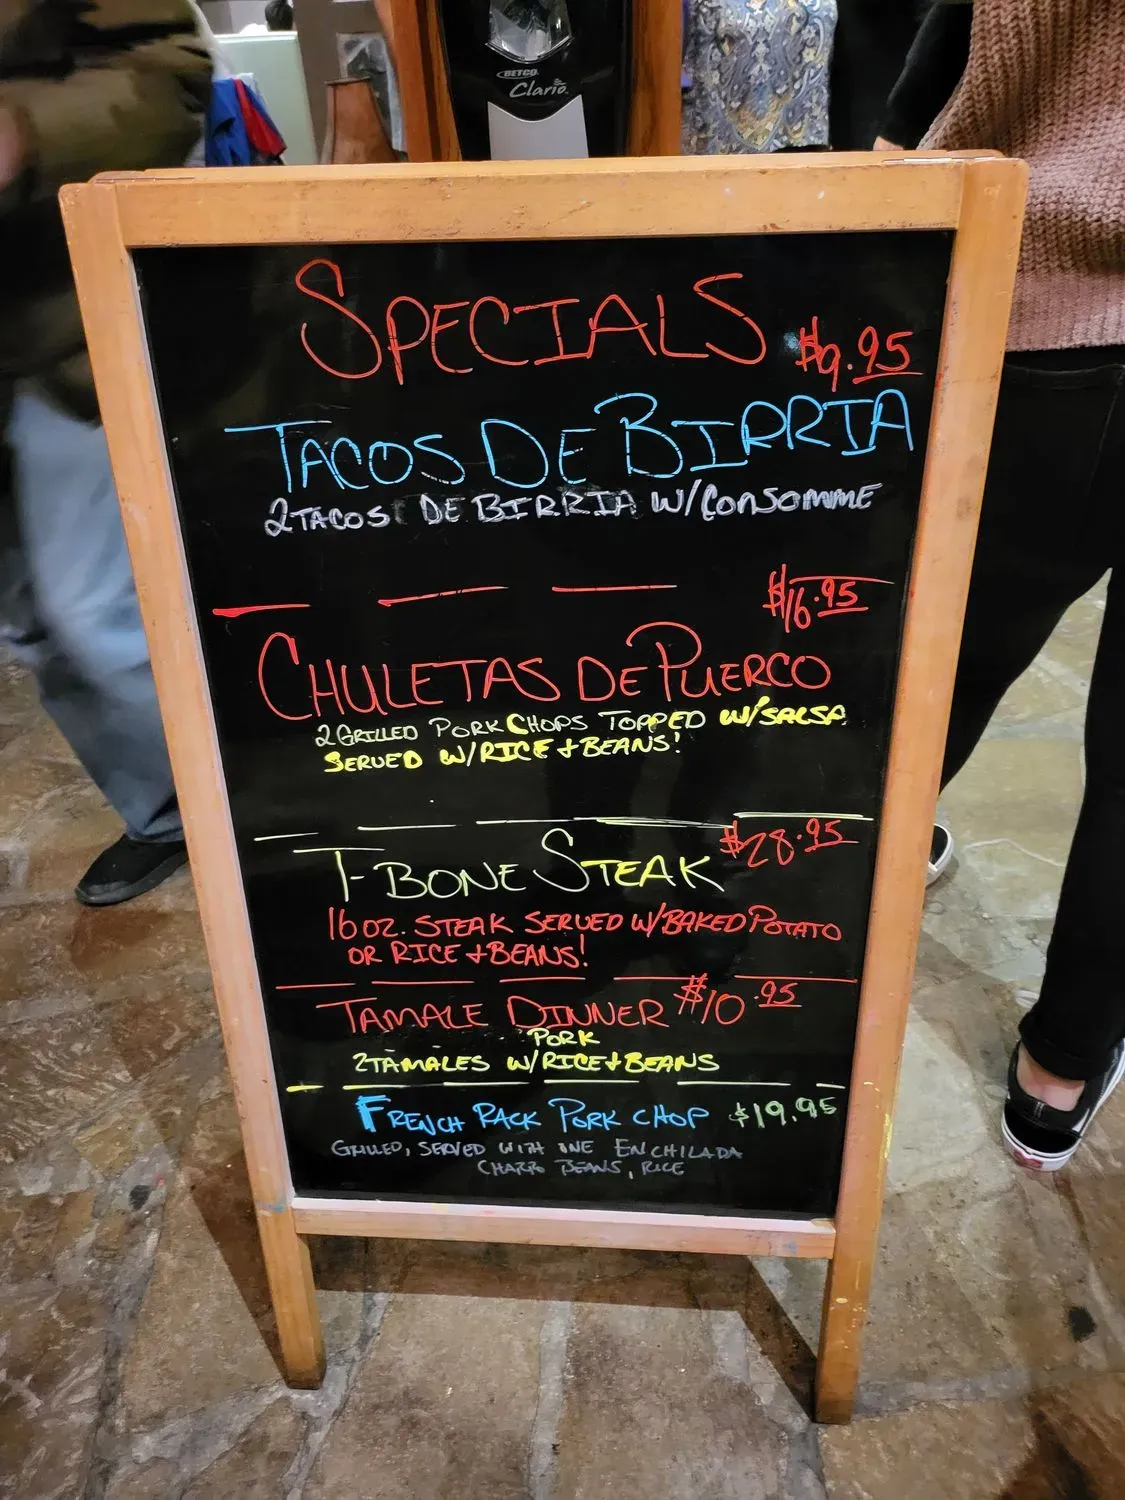 BETCO
Clario
SPECIALS $9.95
TACOS DE BIRRIA
2 TACOS DE BIRRIA W/CONSOMME
$16.95
CHULETAS DE PUERCO
2 GRILLED PORK CHOPS TOPPED W/SALSA
SERVED W/RICE + BEANS!
T-BONE STEAK $28.95
16 OZ. STEAK SERVED W/BAKED POTATO
OR RICE + BEANS!
TAMALE DINNER $10.95
PORK
2 TAMALES W/RICE + BEANS
FRENCH RACK PORK CHOP $19.95
GRILLED, SERVED WITH ONE ENCHILADA
CHARRO BEANS, RICE